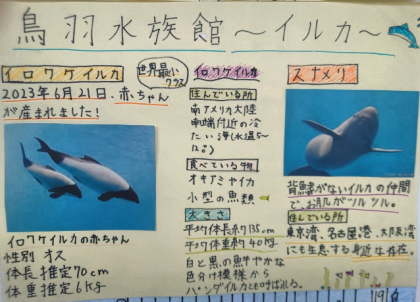 鳥羽水族館〜イルカ〜
イロワケイルカ
世界最小
クラス
2023年6月21日、赤ちゃん
が産まれました！
イロワケイルカの赤ちゃん
性別 オス
体長 推定70cm
体重 推定6kg
イロワケイルカ
住んでいる所
南アメリカ大陸
南端付近の冷
たい海(水温5〜
食べている物
オキアミやイカ
小型の魚類
大きさ
平均体長約135cm
平均体重約40kg
白と黒の鮮やかな
色分け模様から
パンダイルカとも呼ばれる。
スナメリ
背鰭がないイルカの仲間
で、お肌がツルツル。
住んでいる所
東京湾、名古屋港、大阪湾
にも生息する身近な存在。